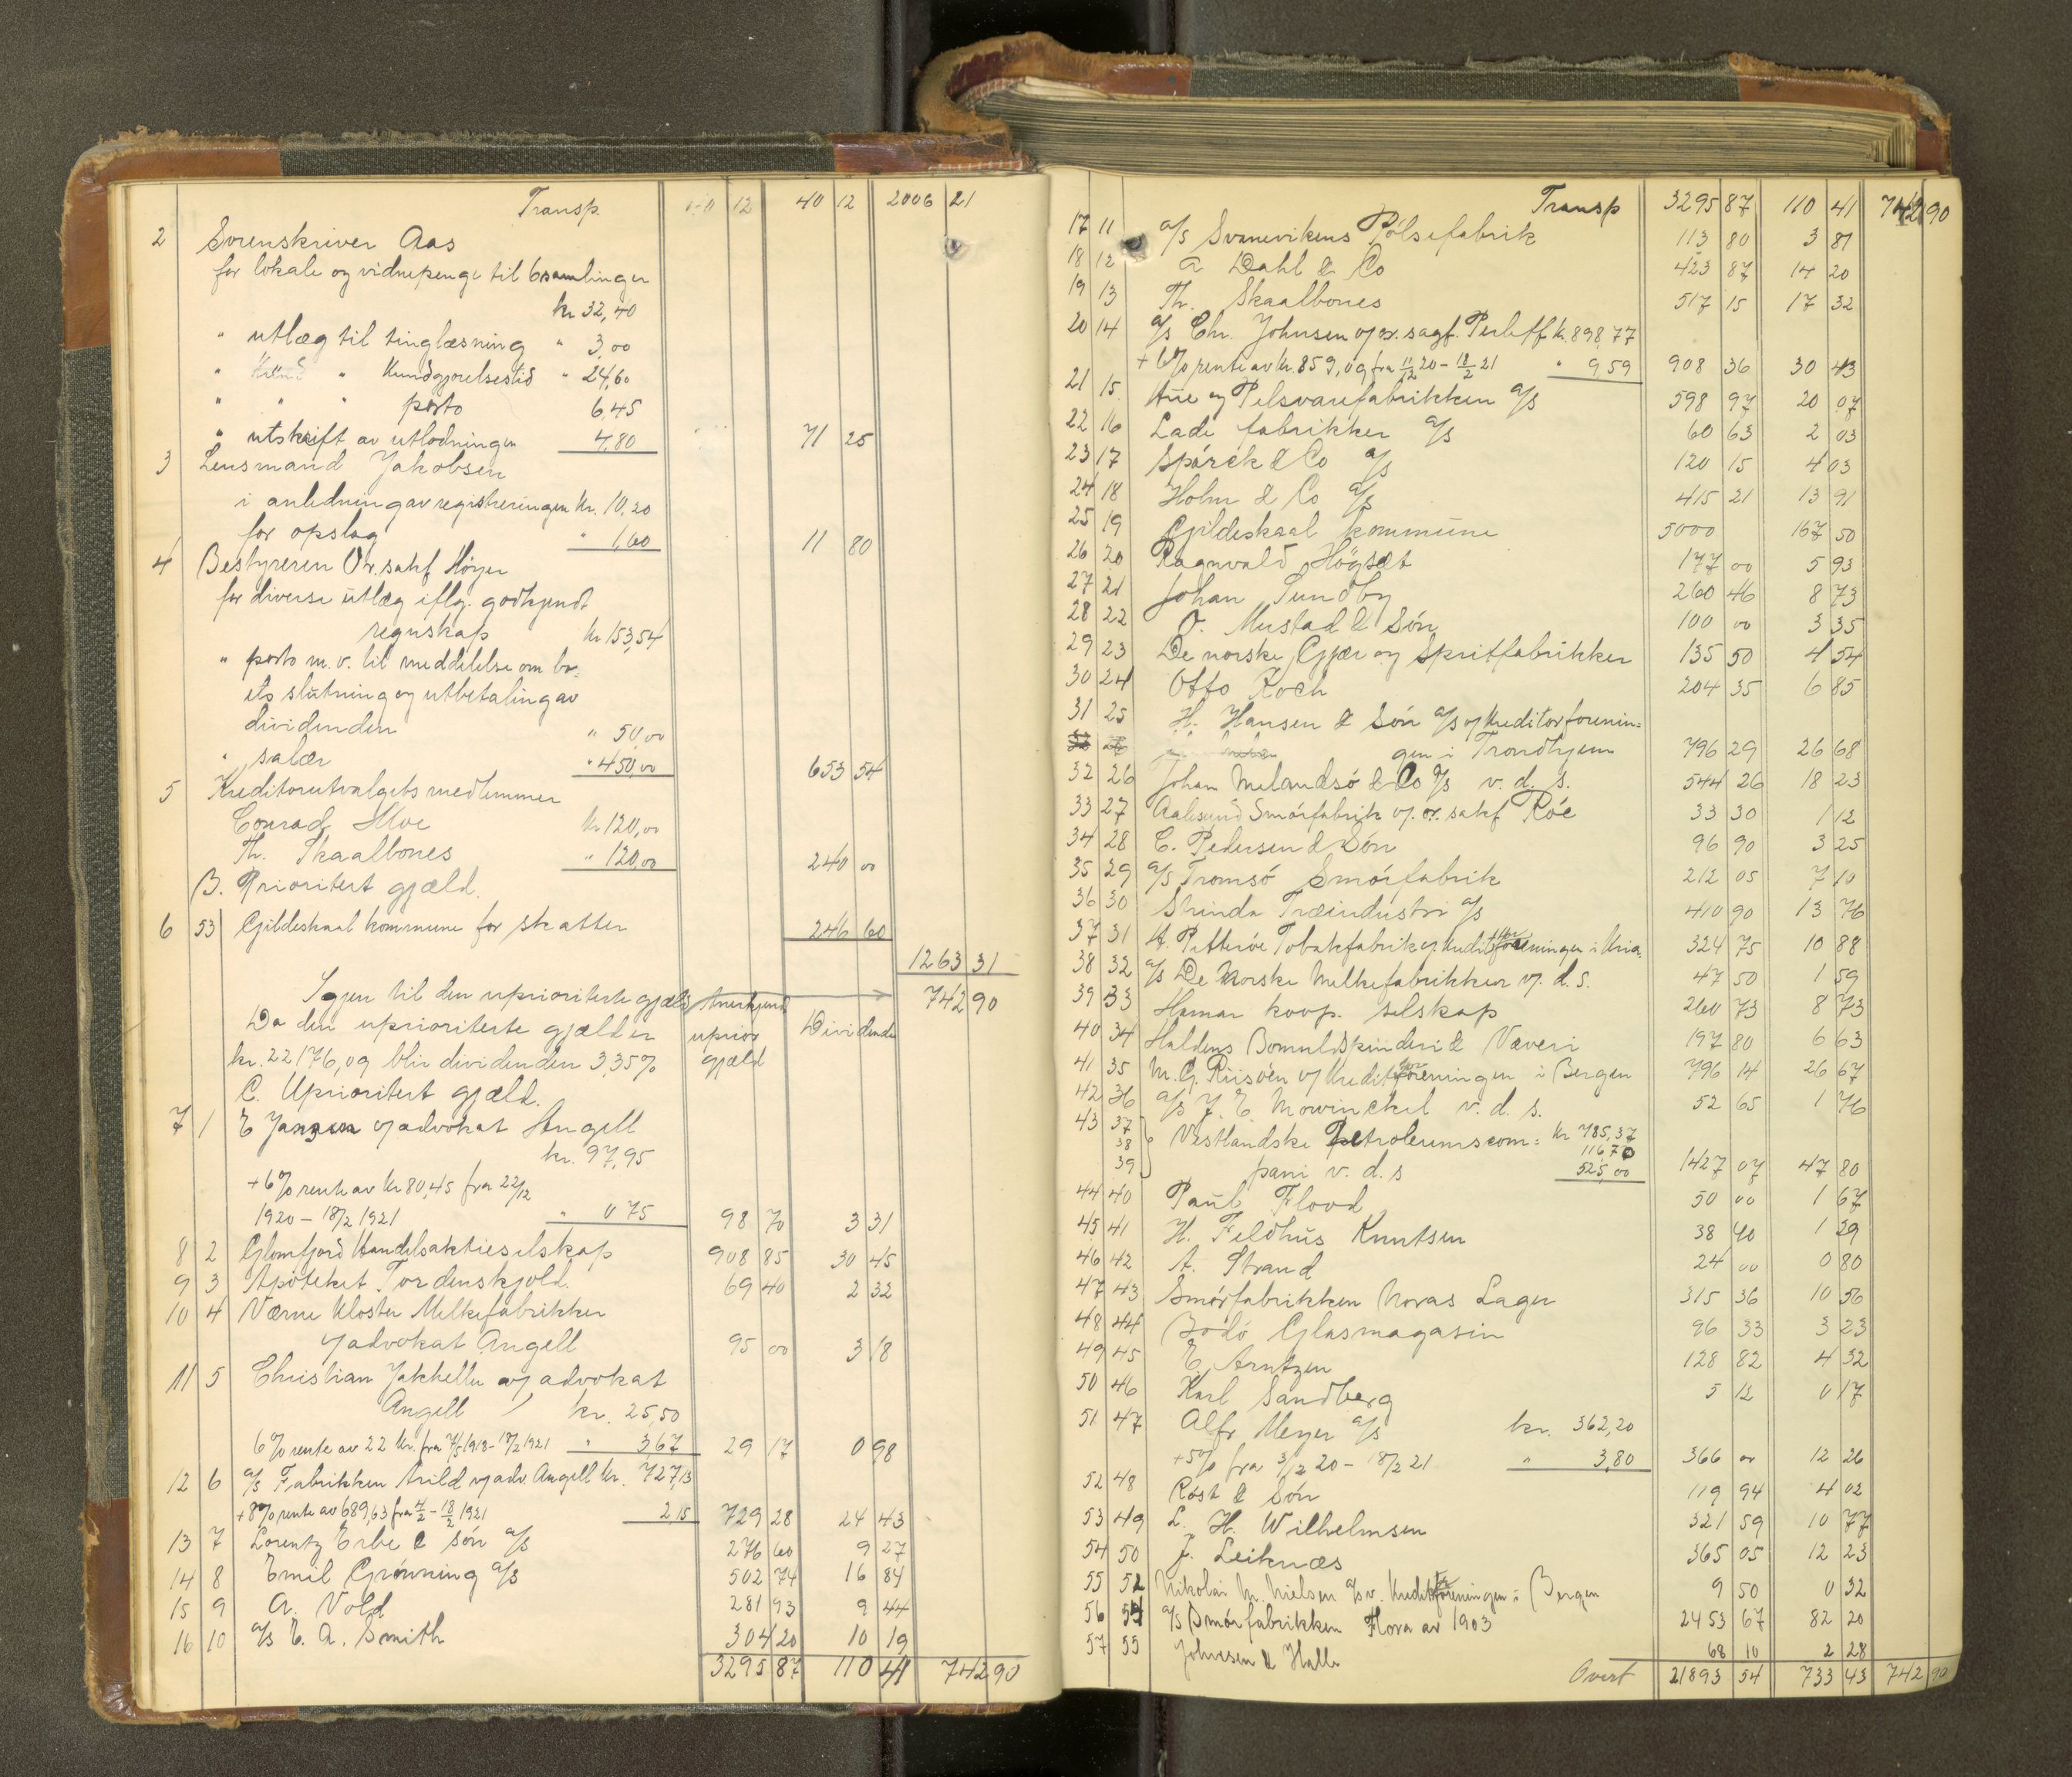 Transp. 40 12 2006 21
2 Sorenskriver Aas
for lokale og vidnepenge til 6 samlinger
kr 32,40
" utlæg til tinglæsning " 3,00
" " Kundgjørelsestid " 24,60
" " " porto 6,45
" utskrift av utlodningen 4,80 71 25
3 Lensmand Jakobsen
i anledning av registreringen kr. 10,20
for opslag " 1,60 11 80
4 Bestyreren Or. sakf Høyer
for diverse utlæg iflg. godkjendt
regnskap kr 153,54
" porto m.v. til meddelelse om bo-
ets slutning og utbetaling av
dividenden " 50,00
" salær " 450,00 653 54
5 Kreditorutvalgets medlemmer
Conrad Hloe kr 120,00
Th. Skaalbones " 120,00 240 00
B. Prioritert gjæld.
6 53 Gjildeskaal kommune for skatter 246 60
1263 31
Igjen til den uprioriterte gjæld 742 90
Da den uprioriterte gjæld er
kr. 22176,09 blir dividenden 3,35%
Anerkjend uprior gjæld Dividende
C. Uprioritert gjæld.
7 1 E Janzen v/advokat Angell
kr. 97,95
+6% rente av kr 80,45 fra 22/12
1920 - 18/2 1921 " 0 75 98 70 3 31
8 2 Glomfjord Handelsaktieselskap 908 85 30 45
9 3 Apoteket Tordenskjold 69 40 2 32
10 4 Værne Kloster Melkefabrikker
v/advokat Angell 95 00 3 18
11 5 Christian Jakhelln v/advokat
Angell kr. 25,50
6% rente av 22 kr. fra 7/5 1918 - 18/2 1921 " 3,67 29 17 0 98
12 6 a/s Fabrikken Arild v/adv. Angell kr. 727,13
+8% rente av 689,63 fra 4/2 - 18/2 1921 2,15 729 28 24 43
13 7 Lorentz Erbe & søn a/s 276 60 9 27
14 8 Emil Grønning a/s 502 74 16 84
15 9 A. Vold 281 93 9 44
16 10 a/s E. A. Smith 304 20 10 19
3295 87 110 41 742 90
Transp 3295 87 110 41 742 90
17 11 a/s Svanevikens Pølsefabrik 113 80 3 81
18 12 A Dahl & Co 423 87 14 20
19 13 Th. Skaalbones 517 15 17 32
20 14 a/s Chr. Johnsen v/ or. sagf. Perleff k. 898,77
+6% rente av kr. 859,09 fra 11/12 20 - 18/2 21 " 9,59 908 36 30 43
21 15 Hue og Pelsvarefabrikken a/s 598 97 20 07
22 16 Lade fabrikker a/s 60 63 2 03
23 17 Spärck & Co a/s 120 15 4 03
24 18 Holm & Co a/s 415 21 13 91
25 19 Gjildeskaal kommune 5000 167 50
26 20 Ragnvald Høgsæt 177 00 5 93
27 21 Johan Sundby 260 46 8 73
28 22 O. Mustad & Søn 100 00 3 35
29 23 De norske Gjær og Spritfabrikker 135 50 4 54
30 24 Otto Koch 204 35 6 85
31 25 H. Hansen & Søn a/s v/ Kreditorforenin-
gen i Trondhjem 796 29 26 68
32 26 Johan Melandsø & Co a/s v. d. s. 544 26 18 23
33 27 Aalesund Smørfabrik v/ or. sakf Røe 33 30 1 12
34 28 C. Pedersen & Søn 96 90 3 25
35 29 a/s Tromsø Smørfabrik 212 05 7 10
36 30 Strinda Træindustri a/s 410 90 13 76
37 31 H. Petterøe Tobakfabrik v/ Kreditorforeningen i Kria. 324 75 10 88
38 32 a/s De Norske Melkefabrikker v/ d. s. 47 50 1 59
39 33 Hamar koop. selskap 260 73 8 73
40 34 Haldens Bomuldspinderi & Væveri 197 80 6 63
41 35 M. G. Riisøen v/ Kreditorforeningen i Bergen 796 14 26 67
42 36 a/s J. E. Mowinckel v. d. s. 52 65 1 76
43 37 38 39 Vestlandske Petroleumscom- kr 785,37
116,70
pani v. d. s 525,00 1427 07 47 80
44 40 Paul Flood 50 00 1 67
45 41 H. Feldhus Knutsen 38 40 1 29
46 42 A. Strand 24 00 0 80
47 43 Smørfabrikken Noras Lager 315 36 10 56
48 44 Bodø Glasmagasin 96 33 3 23
49 45 E. Arntzen 128 82 4 32
50 46 Karl Sandberg 5 12 0 17
51 47 Alfr Meyer a/s kr. 362,20
+5% fra 3/12 20 - 18/2 21 " 3,80 366 00 12 26
52 48 Røst & Søn 119 94 4 02
53 49 L. H. Wilhelmsen 321 59 10 77
54 50 J. Leiknæs 365 05 12 23
55 52 Nikolai M. Nielsen a/s v. Kreditorforeningen i Bergen 9 50 0 32
56 54 a/s Smørfabrikken Flora av 1903 2453 67 82 20
57 55 Johnsen & Halle 68 10 2 28
Overt 21893 54 733 43 742 90